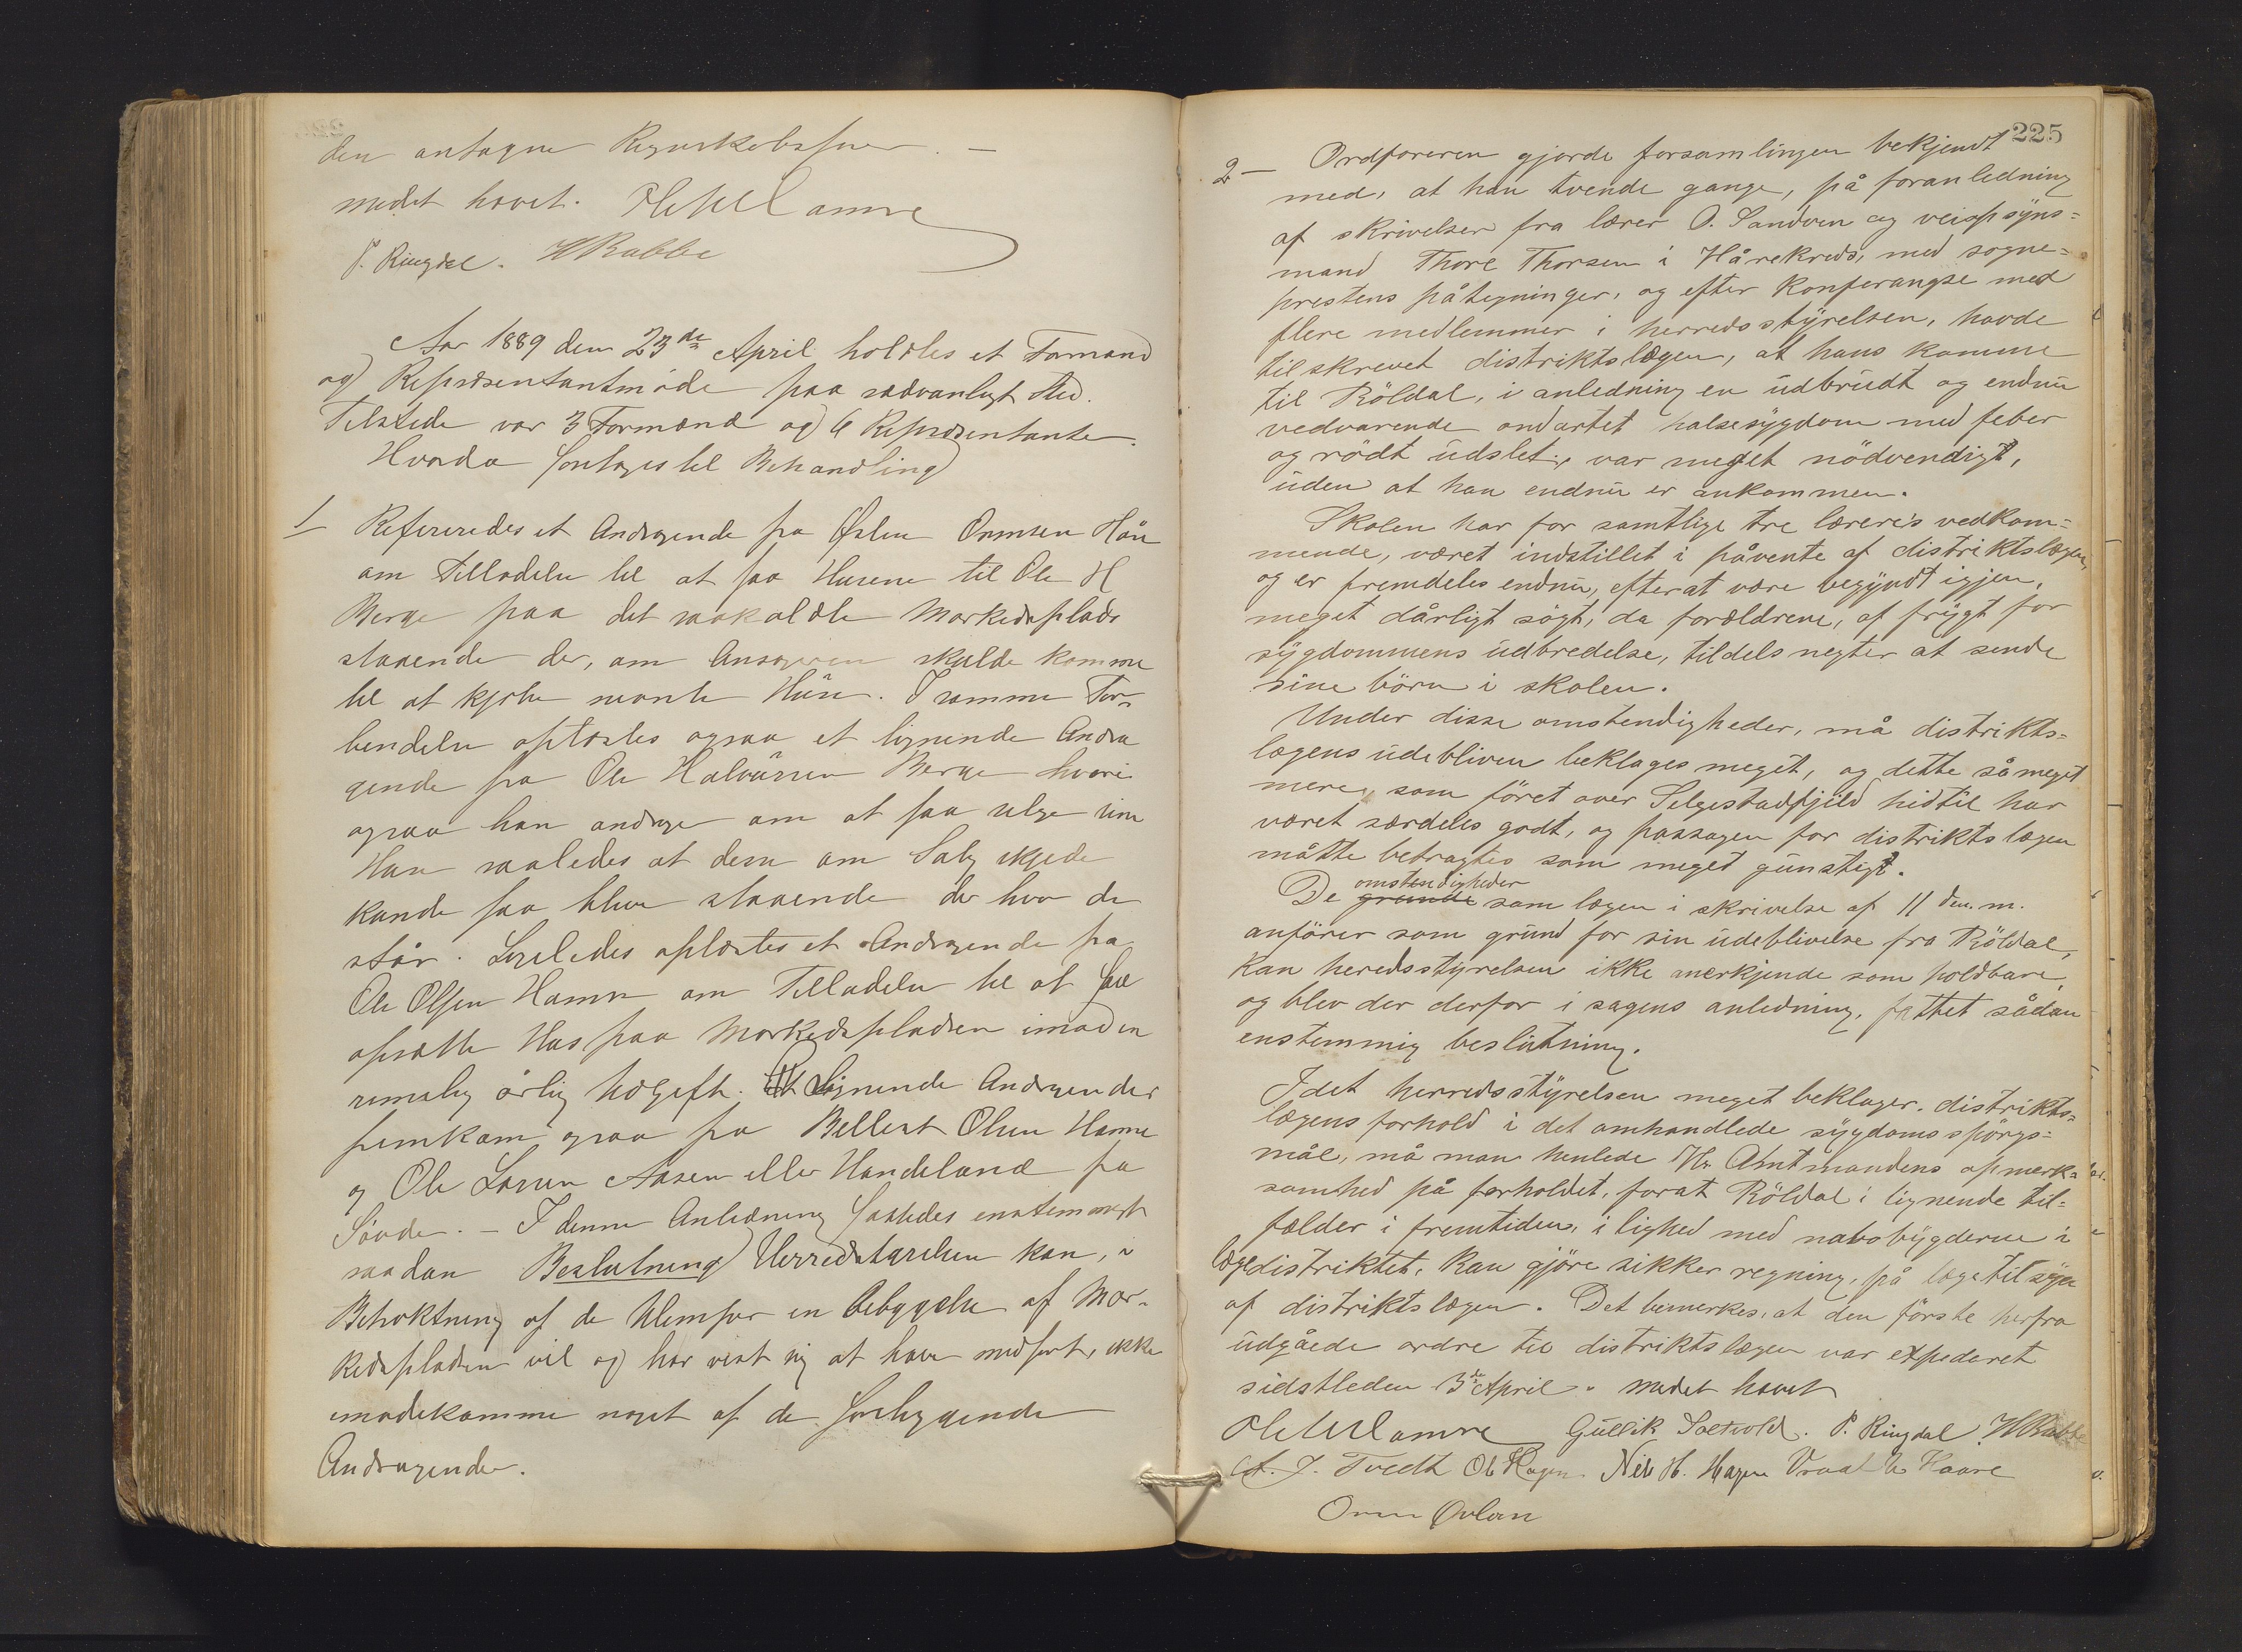 den antagne Regnskabsfører. —
mødet hævet. 
P. Ringdal. H Rabbe
Aar 1889 den 23de April holdtes et Formand
og Repræsentantmøde paa sædvanligt Sted.
Tilstede var 3 Formænd og 6 Repræsentanter.
Hvorda foretoges til Behandling
1 Refereredes et Andragende fra Øslen Ormsen Håre
om Tilladelse til at faa Husene til Ole H
Berge paa det saakaldte Markedsplads
staaende der, om Ansøgeren skulde komme
til at kjøbe nævnte Hus. I samme For-
bendelse oplæstes ogsaa et lignende Andra
gende fra Ole Halvårsen Berge hvori
ogsaa han andrager om at faa selge sine
Huse saaledes at dem om Salg skjede
kunde faa blive staaende der hvor de
står. Ligeledes oplæstes et Andragende fra
Ole Olsen Hamre om Tilladelse til at faa
opsætte Hus paa Markedspladsen imod en
rimelig årlig Avgift. Lignende Andragender
fremkom ogsaa fra Bellest Olsen Hamre
og Ole Larsen Aasen eller Handeland fra
Søvde. — I denne Anledning fattedes enstemmigt
saadan Beslutning Herredstyrelsen kan, i
Betraktning af de Ulemper en Bebyggelse af Mar-
kedspladsen vil og har vist sig at have medført, ikke
imødekomme noget af de foreliggende
Andragender.
225
2 — Ordføreren gjorde forsamlingen bekjendt
med, at han tvende gange, på foranledning
af skrivelser fra lærer O. Sandven og veiopsyns=
mand Thore Thorsen i Hårekreds, med sogne=
prestens påtegninger, og efter konferangse med
flere medlemmer i herredsstyrelsen, havde
tilskrevet distriktslægen, at hans komme
til Röldal, i anledning en udbrudt og endnu
vedvarende ondartet halssygdom med feber
og rödt udslet, var meget nödvendigt,
uden at han endnu er ankommen.
Skolen har for samtlige tre lærere's vedkom=
mende, været indstillet i påvente af distriktslægen,
og er fremdeles endnu, efterat være begyndt igjen,
meget dårligt sögt, da forældrene, af frygt for
sygdommens udbredelse, tildels negter at sende
sine börn i skolen.
Under disse omstendigheder, må distrikts=
lægens udebliven beklages meget, og dette så meget
mere, som föret over Selgestadfjeld hidtil har
været særdeles godt, og passagen for distriktslægen
måtte betragtes som meget gunstigt.
De grunde omstendigheder som lægen i skrivelse af 11 den. m.
anförer som grund for sin udeblivelse fra Röldal,
kan heredsstyrelsen ikke anerkjende som holdbare,
og blev der derfor i sagens anledning, fattet sådan
enstemmig beslutning.
Idet herredsstyrelsen meget beklager distrikts=
lægens forhold i det omhandlede sygdomsspörgs=
mål, må man henlede Hr. Amtmandens opmerk=
somhed på forholdet, forat Röldal i lignende til=
fælder i fremtiden, i lighed med nabobygderne i
lægedistriktet, kan gjöre sikker regning, på lægetilsyn
af distriktslægen. Det bemerkes, at den förste herfra
udgåede ordre til distriktslægen var expederet
sidstleden 3de April. Mødet hævet
Gullik Saltvold. P. Ringdal H Rabbe
A. J. Tvedt Ol Hagen. Nels H. Hagen Vraal Haare
Orm Øvlsen